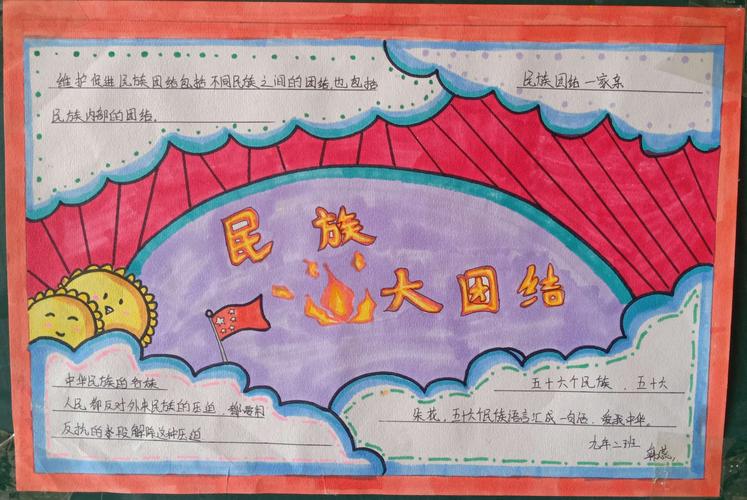 维护促进民族团结包括不同民族之间的团结,也包括
民族内部的团结。
民族团结一家亲
民族
大团结
中华民族的各族
人民都反对外来民族的压迫 都要用
反抗的手段解除这种压迫
五十六个民族 、五十六
朵花,五十六个民族语言汇成一句话,爱我中华。
九年二班